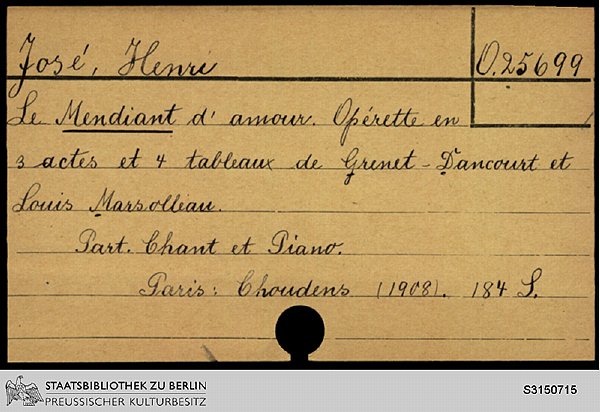 José, Henri
O.25699
Le Mendiant d' amour. Opérette en
3 actes et 4 tableaux de Grenet-Dancourt et
Louis Marsolleau.
Part. Chant et Piano.
Paris: Choudens (1908). 184 S.
STAATSBIBLIOTHEK ZU BERLIN
PREUSSISCHER KULTURBESITZ
S3150715